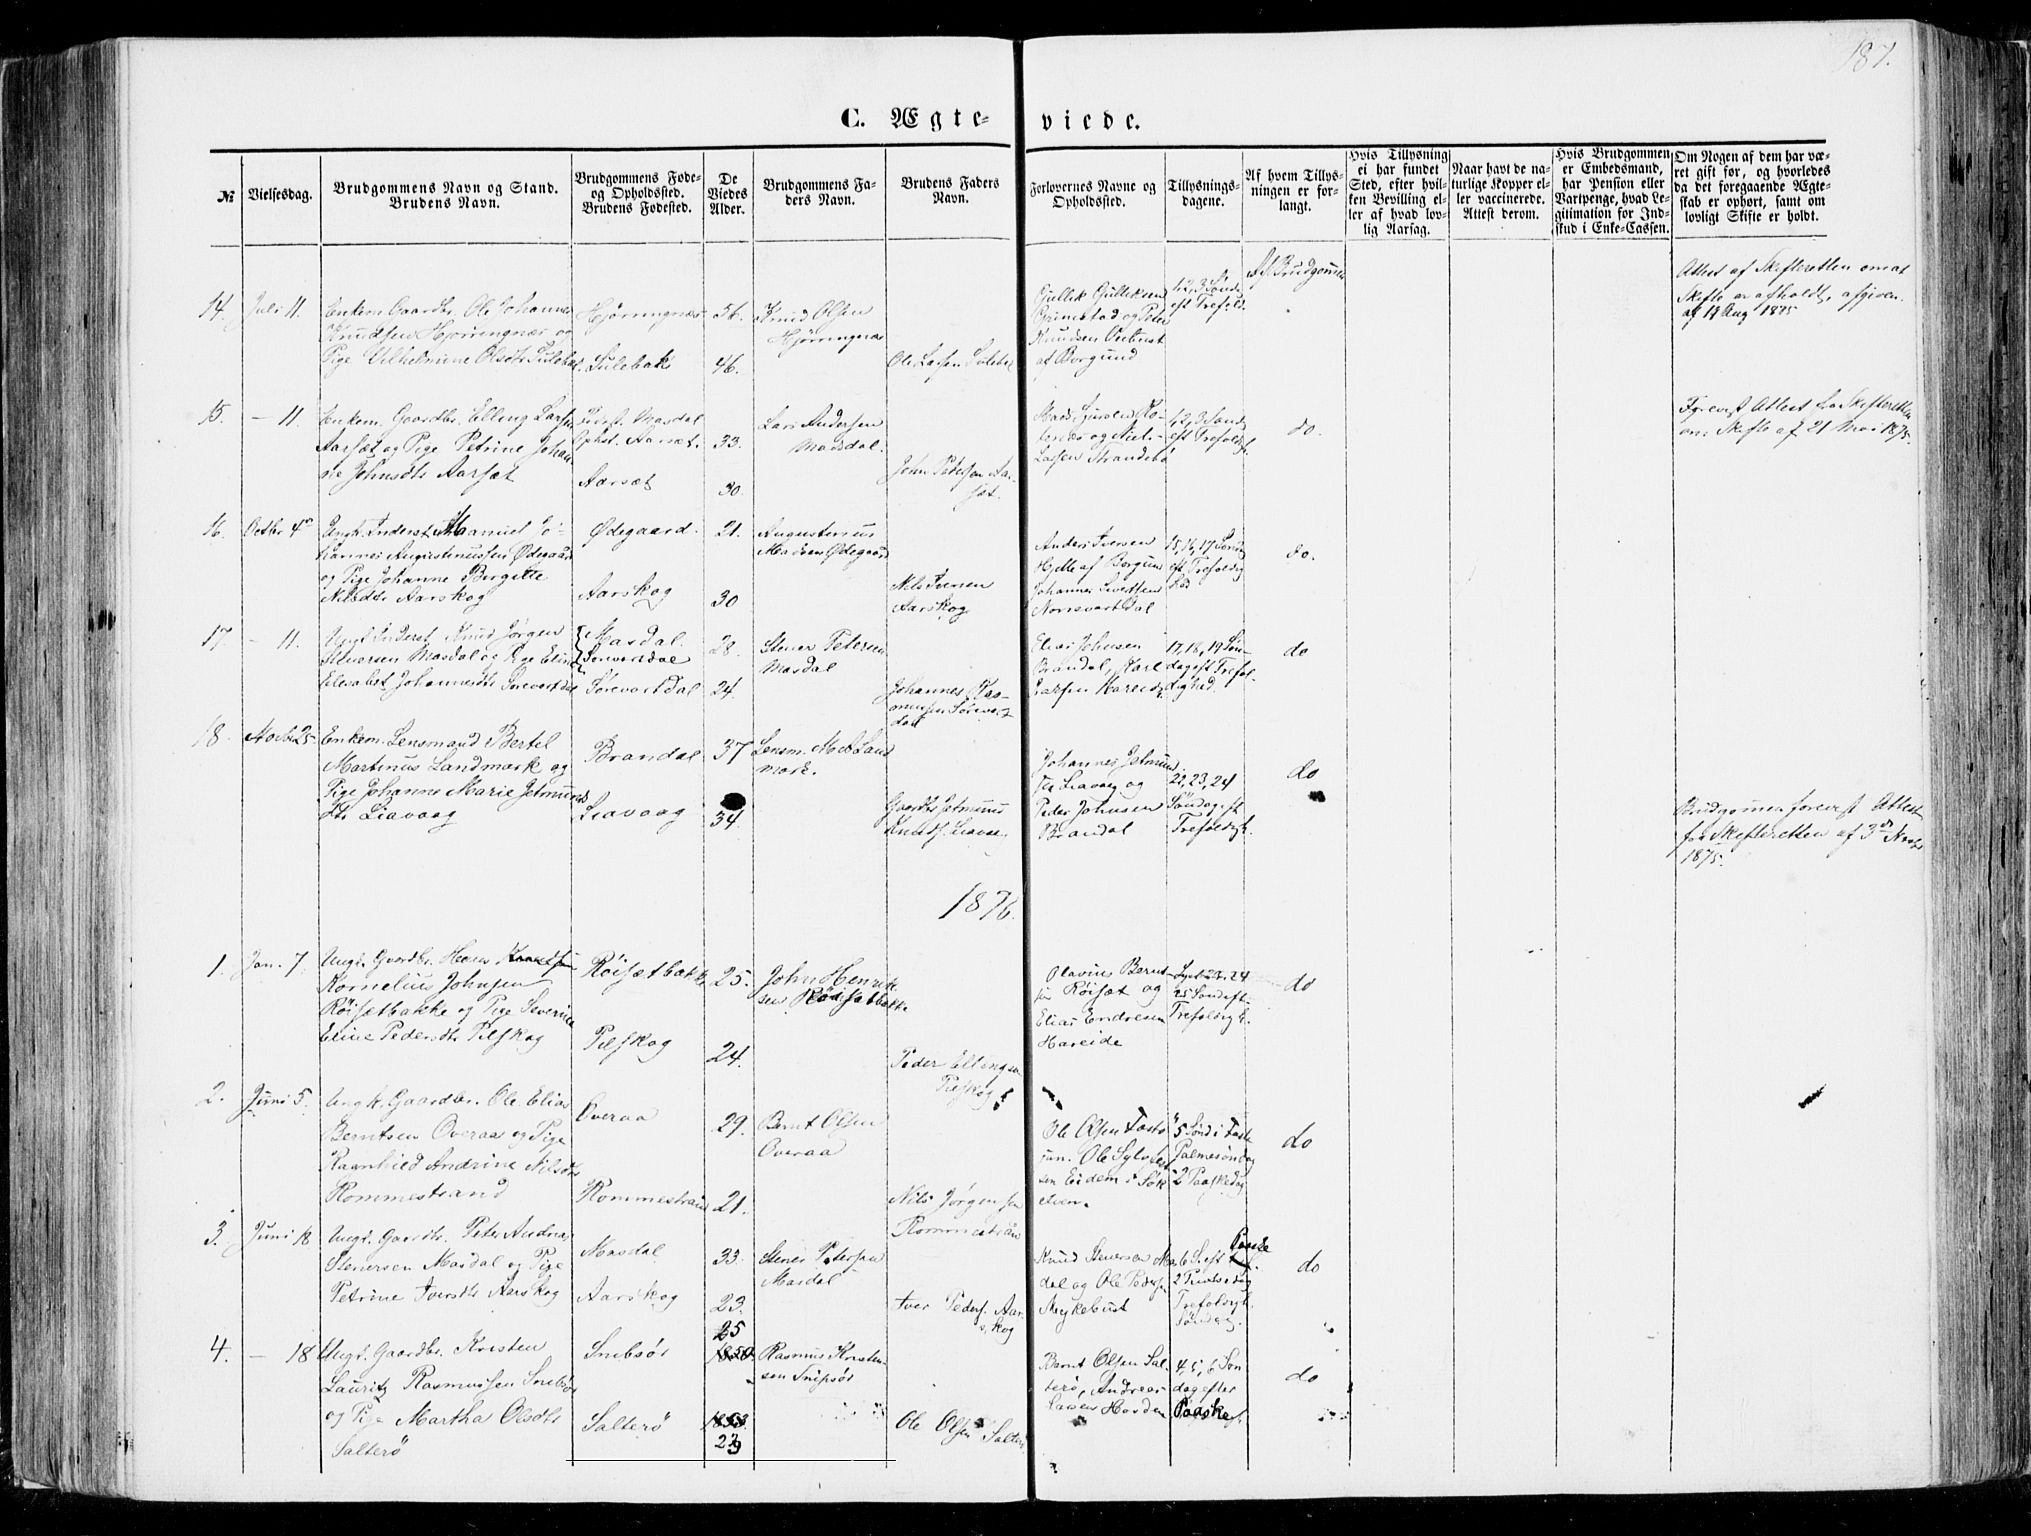 187.
C. Ægte-viede.
№
Vielsesdag.
Brudgommens Navn og Stand.
Brudens Navn.
Brudgommens Føde-
og Opholdssted.
Brudens Fødested.
De
Viedes
Alder.
Brudgommens Fa-
ders Navn.
Brudens Faders
Navn.
Forlovernes Navne og
Opholdssted.
Tillysnings-
dagene.
Af hvem Tillys-
ningen er for-
langt.
Hvis Tillysning
ei har fundet
Sted, efter hvil-
ken Bevilling el-
ler af hvad lov-
lig Aarsag.
Naar havt de na-
turlige Kopper el-
ler vaccinerede.
Attest derom.
Hvis Brudgommen
er Embedsmand,
har Pension eller
Vartpenge, hvad Le-
gitimation for Ind-
skud i Enke-Cassen.
Om Nogen af dem har væ-
ret gift før, og hvorledes
da det foregaaende Ægte-
skab er ophørt, samt om
lovligt Skifte er holdt.
14. Juli 11.
Enkem Gaardbr. Ole Johannes
Knudsen Hjørringnæs og
Pige Vilhelmine Olsdtr Sulebak
Hjørringnæs
Sulebak
56.
46.
Knud Olsen
Hjørringnæs
Ole Larsen Sulebak
Gullik Gulliksen
Grimstad og Peter
Knudsen
af Borgund
1, 2, 3 Sønd
eft Trefold.
Af Brudgommen
Attest af Skifteretten om at
Skifte er afholdt, afgiven
af 19 Aug 1875
15. – 11.
Enkem. Gaardbr. Elling Larsen
Aarsæt og Pige Petrine Johan
ne Johnsdtr Aarsæt
Masdal
Aarsæt.
Aarsæt
33.
30.
Lars Andersen
Masdal.
John Petersen Aar-
sæt.
og Niels
Larsen Strandebø
1, 2, 3 Sønd
eft Trefoldigh.
do.
Forevist Attest fra Skifteretten
om Skifte af 21 Mai 1875.
16. Octbr 4de
Ungk. Inderst Manuel Jo-
hannes Augustinussen Ødegaard
og Pige Johanne Birgitte
Nilsdtr Aarskog
Ødegaard.
Aarskog
21.
30
Augustinus
Madsen Ødegaard
Nils Iversen
Aarskog
Anders Iversen
Hjelle af Borgund
Johannes Sivertsen
Norsvartdal
15, 16, 17 Sønd
eft Trefoldig
hed
do.
17. – 11.
Ungk Inderst Knud Jørgen
Stenersen Masdal og Pige Eline
Elisabet Johannesdtr Sørevartdal
Masdal.
Sørevartdal
Sørevartdal
28.
24.
Stener Petersen
Masdal
Johannes Ras-
mussen Sørevart
dal
Elias Johnsen
Brandal, Karl
Larsen Hareide
17, 18, 19 Søn-
dag eft Trefol-
dighed.
do
18. Novbr 25
Enkem. Lensmand Bertel
Martinus Landmark og
Pige Johanne Marie Jetmunds
dtr Liavaag
Brandal
Liavaag
37
34.
Lensm. M. A. Land
mark.
Gaardbr Jetmund
Knuds. Liavaag
Johannes Jetmund
sen Liavaag og
Peder Johnsen
Brandal
22, 23, 24
Søndag eft
Trefoldigh.
do
Brudgommen forevist Attest
fra Skifteretten af 3de Novbr
1875.
1876.
1. Jan. 7.
Ungk. Gaardbr. Hans
Kornelius Johnsen
Røisætbakke og Pige Severine
Eline Pedersdtr Pilskog
Røisætbakke
Pilskog
25.
24.
John Henrik
sen Røisætbakke
Peder Ellingsen
Pilskog
Olavius Bernt-
sen Røisæt og
Elias Endresen
Hareide
24
25 Sønd eft
Trefoldigh.
do
2. Juni 5.
Ungk. Gaardbr. Ole Elias
Berntsen Overaa og Pige
Ragnhild Andrine Nilsdtr
Rommestrand
Overaa
Rommestrand
29.
21.
Bernt Olsen
Overaa
Nils Jørgensen
Rommestrand
Ole Olsen
Ole Sylvest
sen Eidem i Søk
elven.
5 Sønd i Faste
Palmesøndag
2 Paaskedag
do
3. Juni 18
Ungk. Gaardbr. Peter Andreas
Stenersen Masdal og Pige
Petrine Iversdtr Aarskog
Masdal
Aarskog
33.
23.
Stener Petersen
Masdal
Iver Peders. Aar
skog
Knud Stenersen Mas
dal og Ole Peders
Myklebust
6 S. eft Paaske
2 Pintsedag
Trefoldigh.
Søndag.
do
4. – 18
Ungk. Gaardbr. Kristen
Lauritz Rasmussen Snibsør
og Pige Martha Olsdtr
Salterø
Snibsør
Salterø
25
1850
1853.
23
Rasmus Kristen-
sen Snipsør
Ole Olsen Salterø
Bernt Olsen Sal-
terø, Andreas
Larsen Havden
4, 5, 6 Søn
dag efter
Paaske
do